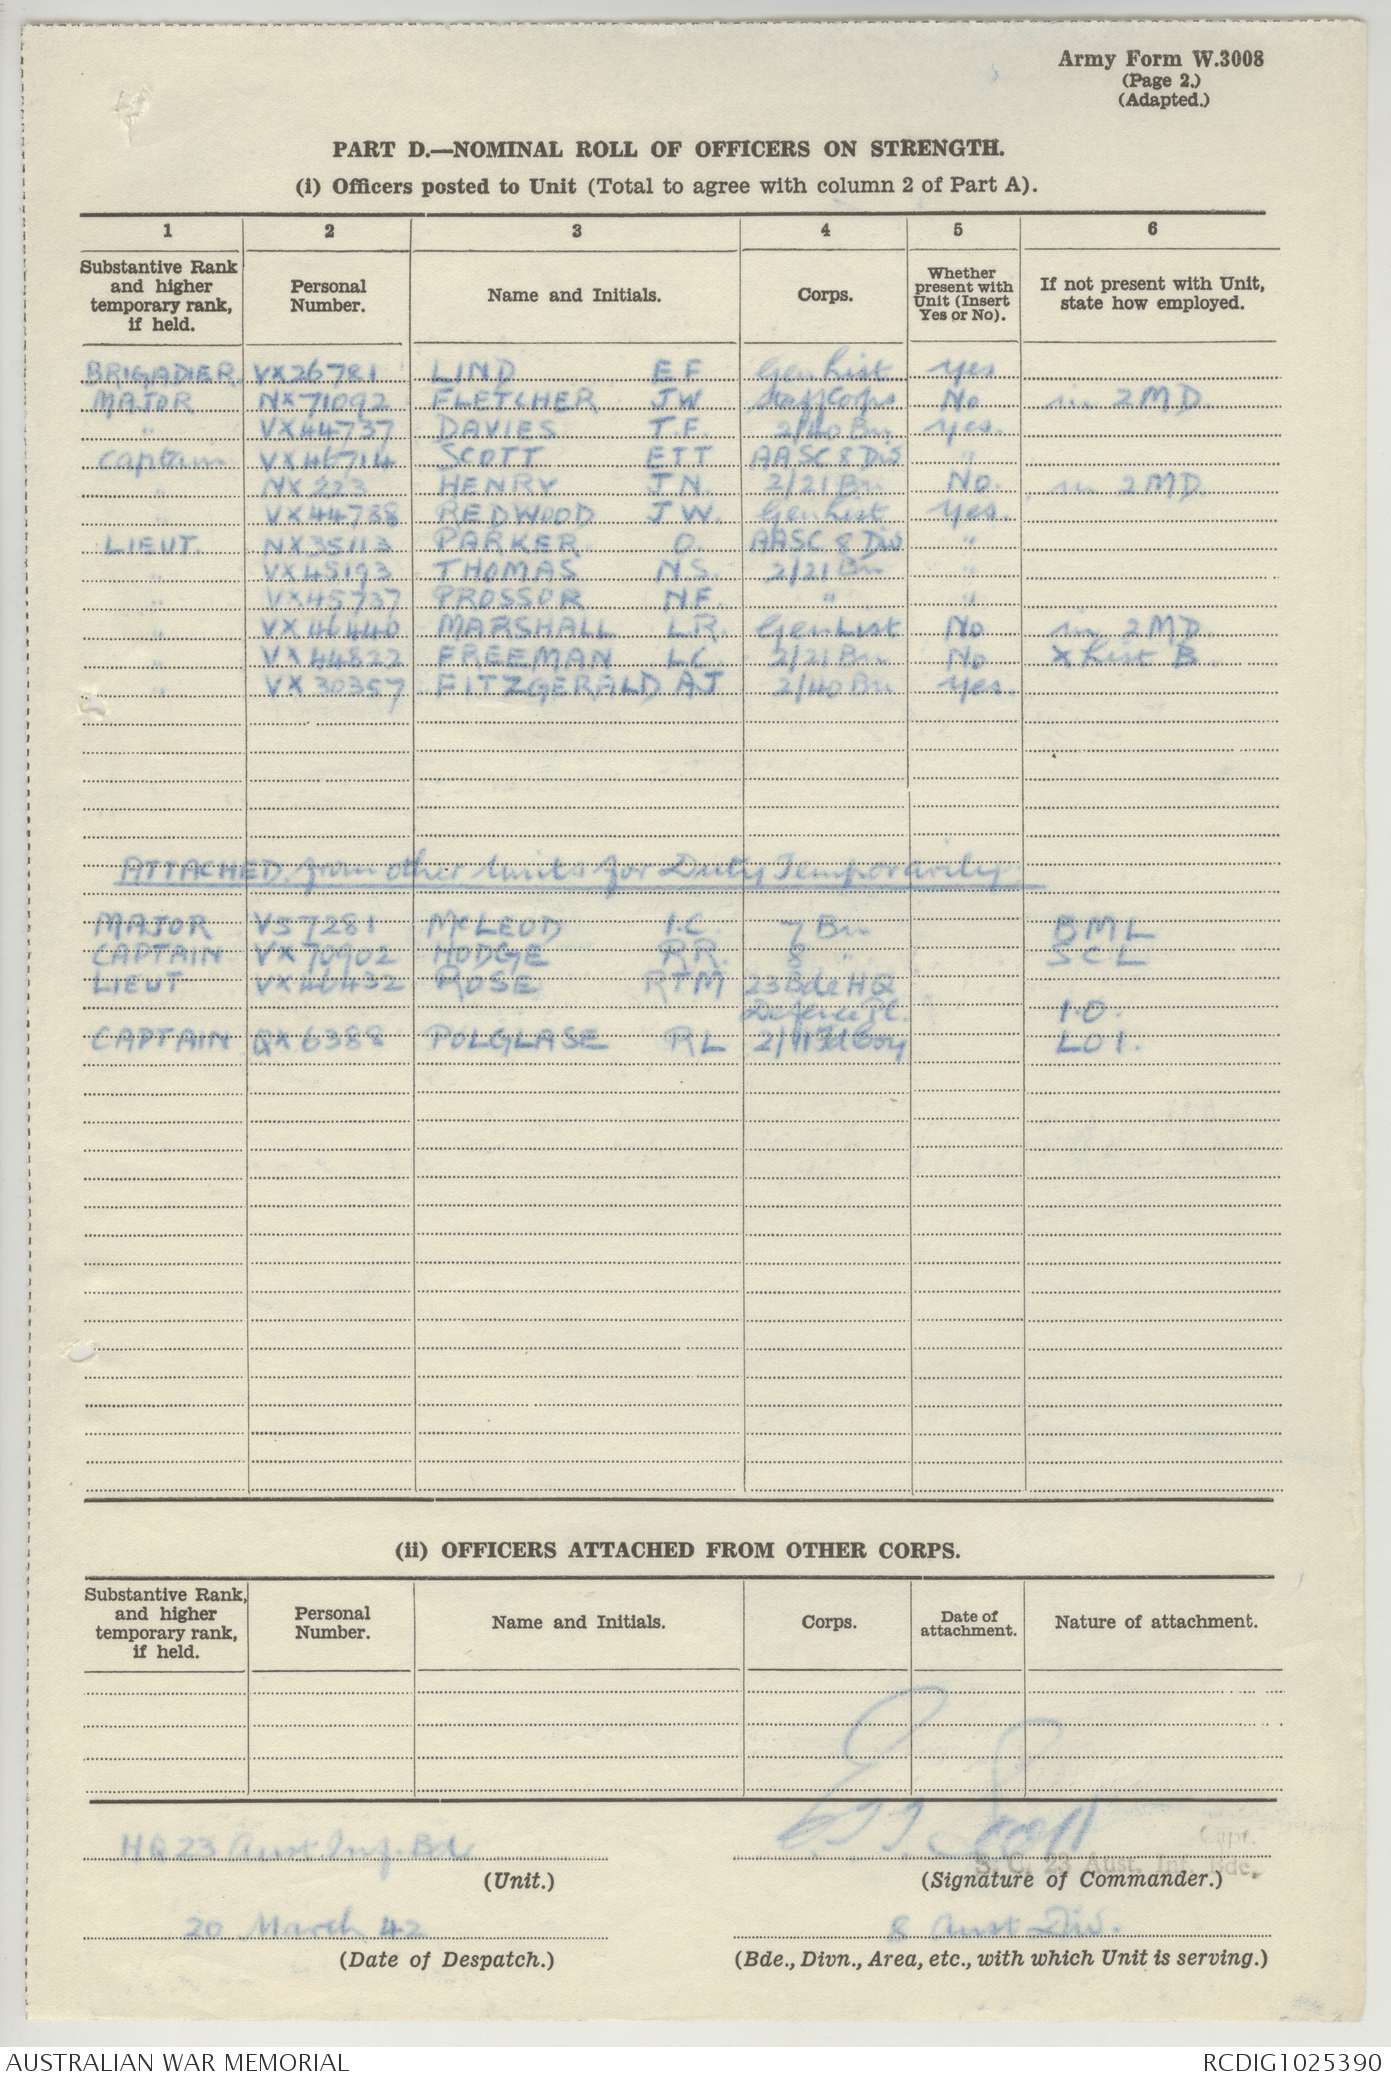 Army Form W.3008
(Page 2.)
(Adapted.)
PART D.—NOMINAL ROLL OF OFFICERS ON STRENGTH.
(i) Officers posted to Unit (Total to agree with column 2 of Part A).
1 2 3 4 5 6
Substantive Rank and higher temporary rank, if held. Personal Number. Name and Initials. Corps. Whether present with Unit (Insert Yes or No). If not present with Unit, state how employed.
BRIGADIER VX26781 LIND E F Gen List yes
MAJOR NX71092 FLETCHER J W Staff Corps No in 2 M D.
" VX44737 DAVIES T. F. 2/40 Bn yes.
Captain VX46714 SCOTT E T T AASC 8 Div "
" NX 223 HENRY J N. 2/21 Bn No. in 2 M D
" VX44738 REDWOOD J W. Gen List yes.
LIEUT. NX35113 PARKER O. AASC 8 Div "
" VX45193 THOMAS N S. 2/21 Bn "
" VX45737 PROSSOR N F. " "
" VX46440 MARSHALL L R. Gen List No in 2 M D.
" VX44822 FREEMAN L C. 2/21 Bn No X List B.
" VX30357 FITZGERALD A J 2/40 Bn yes.
ATTACHED from other Units for Duty Temporarily
MAJOR V57281 McLEOD I. C. 7 Bn B M L
CAPTAIN VX70902 HODGE R R. 8 " S C L
LIEUT VX46432 ROSE R T M 23 Bde H Q
Defence Pl. I. O.
CAPTAIN QX6388 POLGLASE R L 2/11 Fd Coy L O 1.
(ii) OFFICERS ATTACHED FROM OTHER CORPS.
Substantive Rank, and higher temporary rank, if held. Personal Number. Name and Initials. Corps. Date of attachment. Nature of attachment.
E. T. T. Scott
Capt.
HQ 23 Aust Inf. Bde
S. C. 23 Aust. Inf. Bde.
(Unit.) (Signature of Commander.)
20 March 42 8 Aust Div.
(Date of Despatch.) (Bde., Divn., Area, etc., with which Unit is serving.)
AUSTRALIAN WAR MEMORIAL RCDIG1025390